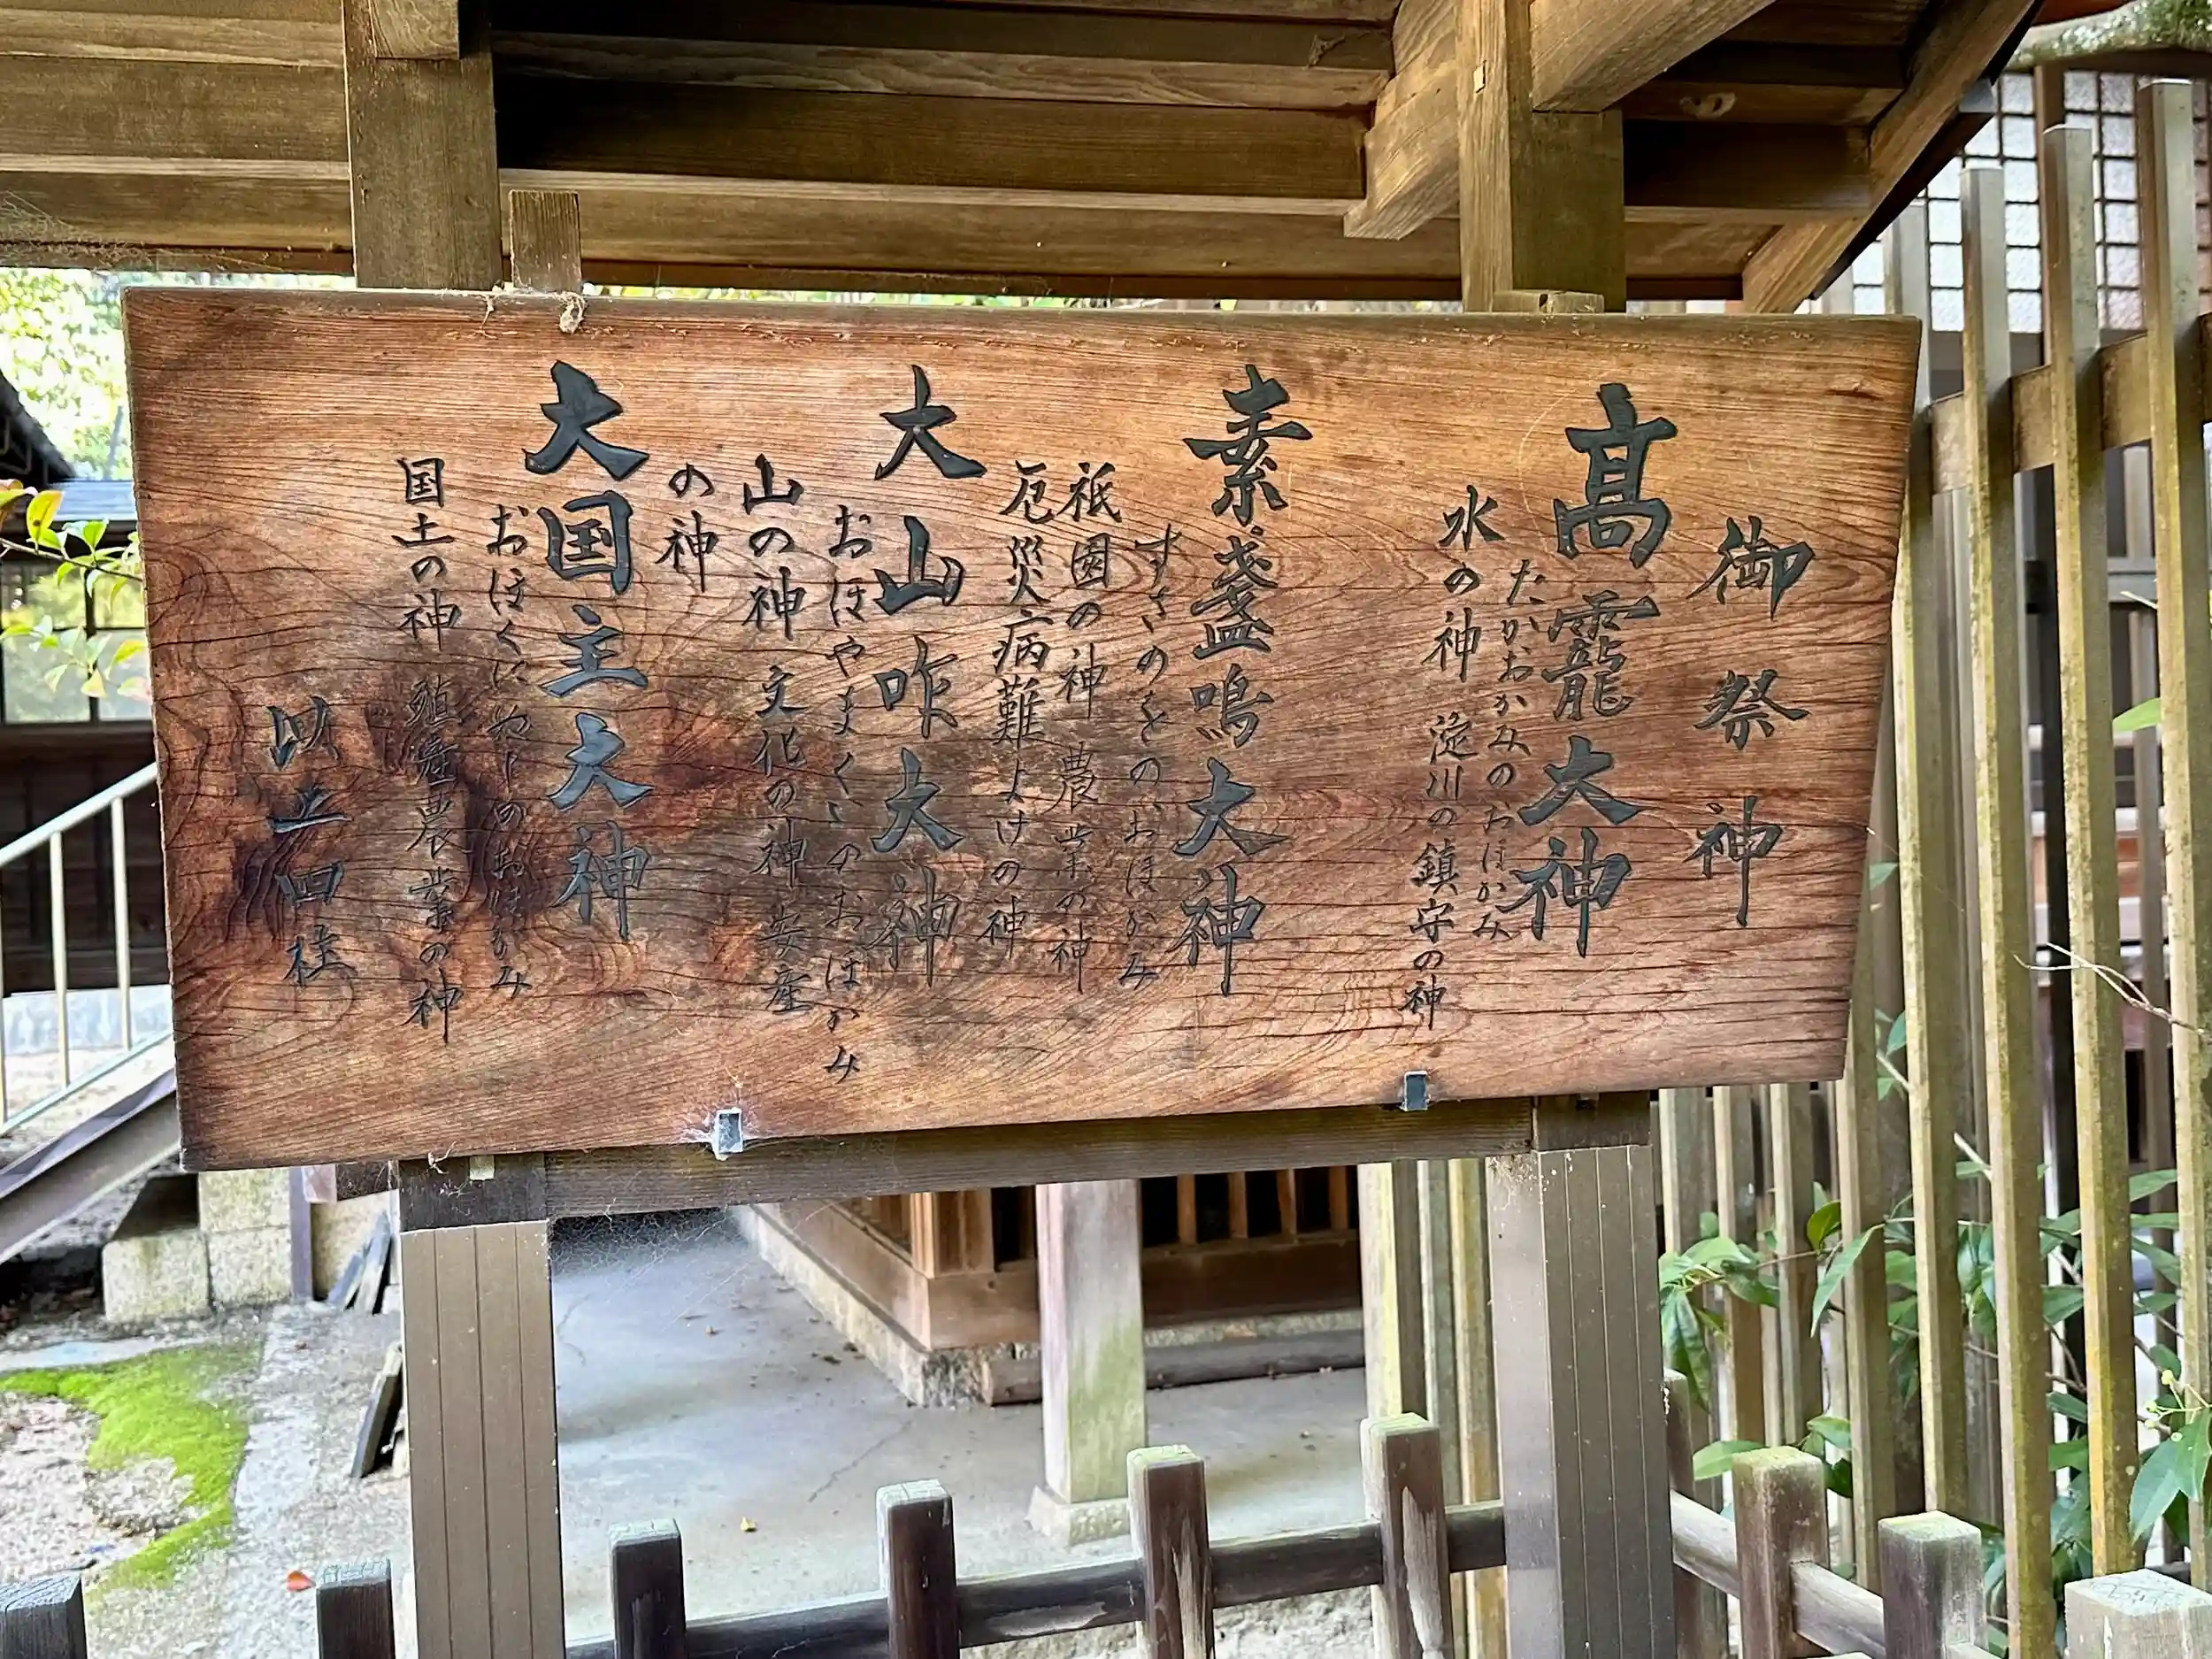 御祭神
髙龗大神
たかおかみのおほかみ
水の神 淀川の鎮守の神
素盞嗚大神
すさのをのおほかみ
祇園の神 農業の神
厄災病難よけの神
大山咋大神
おほやまくいのおほかみ
山の神 文化の神 安産
の神
大国主大神
おほくにぬしのおほかみ
国土の神 殖産農業の神
以上四柱